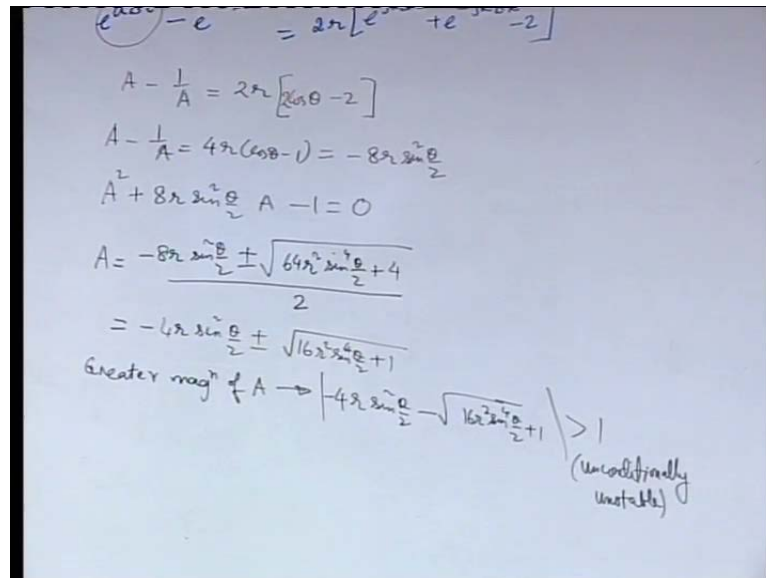 e^{aΔt} - e = 2r[e + e -2]
A - 1/A = 2r[2cosθ - 2]
A - 1/A = 4r(cosθ-1) = -8r sin²θ/2
A² + 8r sin²θ/2 A - 1 = 0
A = (-8r sin²θ/2 ± √(64r² sin⁴θ/2 + 4))/2
= -4r sin²θ/2 ± √(16r² sin⁴θ/2 + 1)
Greater magⁿ of A → |-4r sin²θ/2 - √(16r² sin⁴θ/2 + 1)| > 1
(unconditionally
unstable)